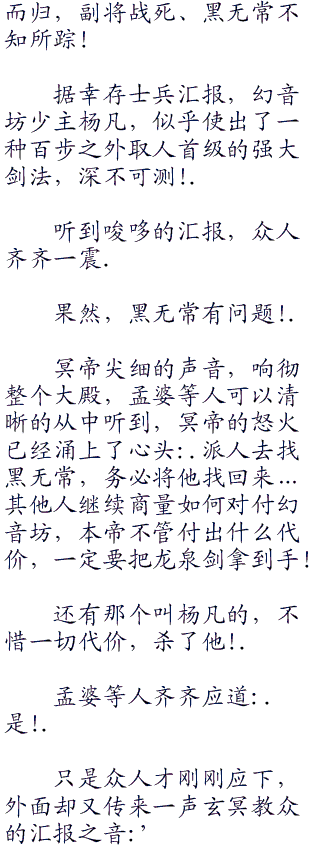 而归，副将战死、黑无常不
知所踪！
据幸存士兵汇报，幻音
坊少主杨凡，似乎使出了一
种百步之外取人首级的强大
剑法，深不可测！.
听到唆哆的汇报，众人
齐齐一震.
果然，黑无常有问题！.
冥帝尖细的声音，响彻
整个大殿，孟婆等人可以清
晰的从中听到，冥帝的怒火
已经涌上了心头：.派人去找
黑无常，务必将他找回来…
其他人继续商量如何对付幻
音坊，本帝不管付出什么代
价，一定要把龙泉剑拿到手！
还有那个叫杨凡的，不
惜一切代价，杀了他！.
孟婆等人齐齐应道：.
是！.
只是众人才刚刚应下，
外面却又传来一声玄冥教众
的汇报之音：’